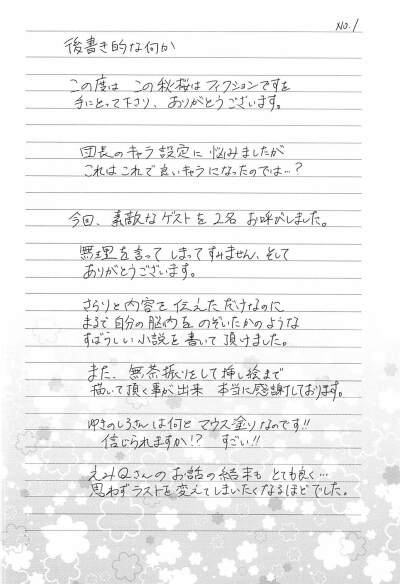 No.1
後書き的な何か
この度は この秋桜はフィクションですを
手にとって下さり、ありがとうございます。
団長のキャラ設定に悩みましたが
これはこれで良いキャラになったのでは…?
今回、素敵なゲストを2名お呼びしました。
無理を言ってしまってすみません、そして
ありがとうございます。
さらりと内容を伝えただけなのに
まるで自分の脳内をのぞいたかのような
すばらしい小説を書いて頂けました。
また、無茶振りをして挿し絵まで
描いて頂く事が出来 本当に感謝しております。
ゆきのしろさんは何とマウス塗りなのです!!
信じられますか!? すごい!!
えみQさんのお話の結末も とても良く…
思わずラストを変えてしまいたくなるほどでした。